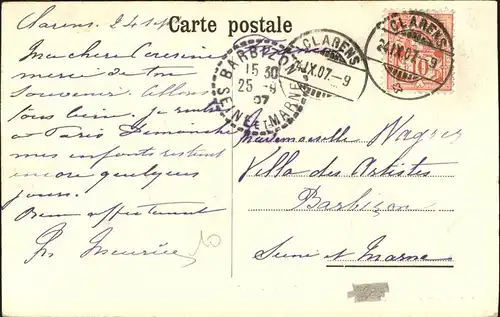 Carte postale
Clarens, 24 sept
Ma chère Cerisine
merci de ton
souvenir. Allons
tous bien. Je rentre
à Paris Dimanche
mes enfants restent
encore quelques
jours.
Bien affectueusement
Maurice
BARBIZON
15 30
25 -9
07
SEINE ET MARNE
CLARENS
24.IX.07.-9
CLARENS
24.IX.07.-9
10
Mademoiselle Wagrez
Villa des Artistes
Barbizon
Seine et Marne
10